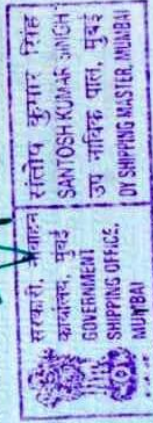 सरकारी, नौवहन
कार्यालय, मुंबई
GOVERNMENT
SHIPPING OFFICE,
MUMBAI
संतोष कुमार सिंह
SANTOSH KUMAR SINGH
उप नाविक पाल, मुंबई
DY SHIPPING MASTER, MUMBAI